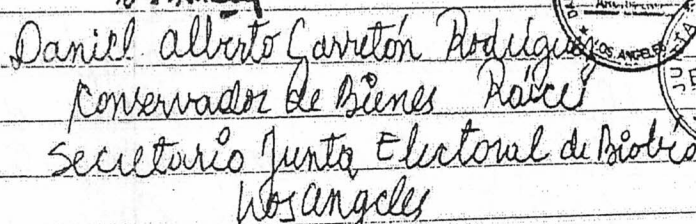 Daniel Alberto Garretón Rodríguez
Conservador de Bienes Raíces
Secretario Junta Electoral de Biobío
Los Angeles
LOS ANGELES
JU